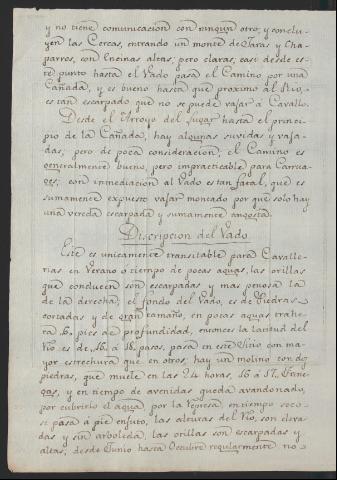 y no tiene comunicacion con ningun otro, y conclu-
yen las Cercas, entrando un monte de Jaras y Cha-
parros, con Encinas altas, pero claras, casi desde es-
te punto hasta el Vado pasa el Camino por una
Cañada, y es bueno hasta que proximo al Rio,
es tan escarpado que no se puede vajar á Cavallo.
Desde el Arroyo del Lugar hasta el princi-
pio de la Cañada, hay algunas suvidas y vaja-
das; pero de poca consideracion; el Camino es
generalmente bueno, pero impracticable para Carrua-
ges; con inmediacion al Vado es tan fatal, que es
sumamente expuesto vajar montado por que solo hay
una vereda escarpada y sumamente angosta.
Discripcion del Vado
Este es unicamente transitable para Cavalle-
rias en Verano o tiempo de pocas aguas, las orillas
que conducen son escarpadas y mas penosa la
de la derecha; el fondo del Vado, es de Piedras
cortadas y de gran tamaño, en pocas aguas
6 pies de profundidad, entonces la latitud del
Rio es de 16 á 18 pasos, pasa en este Sitio con ma-
yor estrechura que en otros, hay un molino con dos
piedras, que muele en las 24 horas, 16 á 17 Fane-
gas, y en tiempo de avenidas queda avandonado,
por cubrirlo el agua por la represa, en tiempo seco
se pasa á pie enjuto, las alturas del Rio, son eleva-
das y sin arboleda, las orillas son escarpadas y
altas; desde Junio hasta Octubre regularmente no